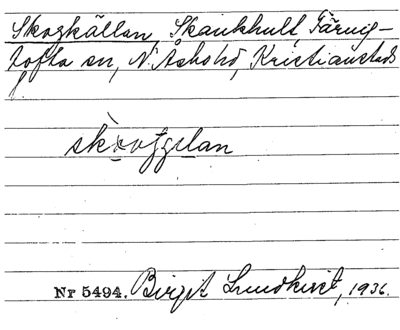 Skogkällan, Skankhult, Färing-
tofta sn, N. Åsbohd, Kristianstads
l.
Nr 5494. Birgit Lundkvist, 1936.